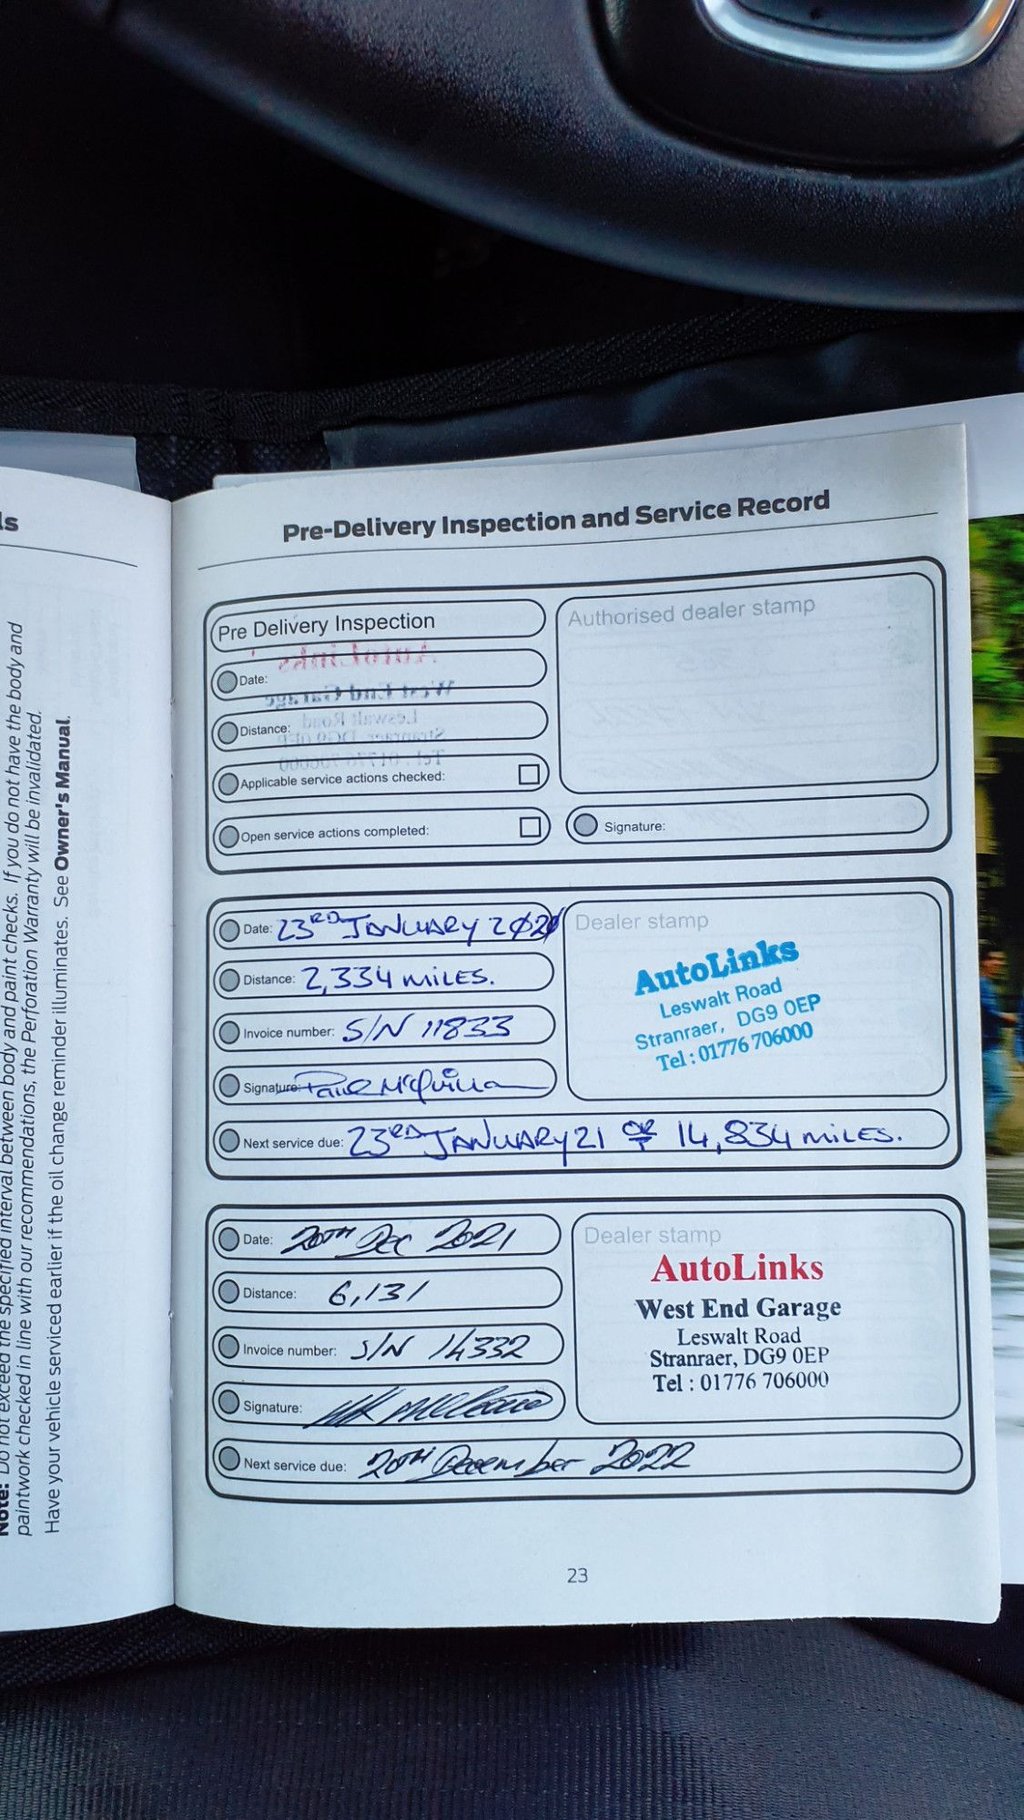 ls
Note: Do not exceed the specified interval between body and paint checks. If you do not have the body and
paintwork checked in line with our recommendations, the Perforation Warranty will be invalidated.
Have your vehicle serviced earlier if the oil change reminder illuminates. See Owner's Manual.
Pre-Delivery Inspection and Service Record
Pre Delivery Inspection
Authorised dealer stamp
Date:
Distance:
Applicable service actions checked:
Open service actions completed:
Signature:
Date: 23RD JANUARY 202
Dealer stamp
Distance: 2,334 MILES.
AutoLinks
Leswalt Road
Stranraer, DG9 0EP
Tel : 01776 706000
Invoice number: S/N 11833
Signature:
Next service due: 23RD JANUARY 21 OR 14,834 MILES.
Date: 20TH Dec 2021
Dealer stamp
Distance: 6,131
AutoLinks
West End Garage
Leswalt Road
Stranraer, DG9 0EP
Tel : 01776 706000
Invoice number: S/N 14332
Signature:
Next service due: 20TH December 2022
23